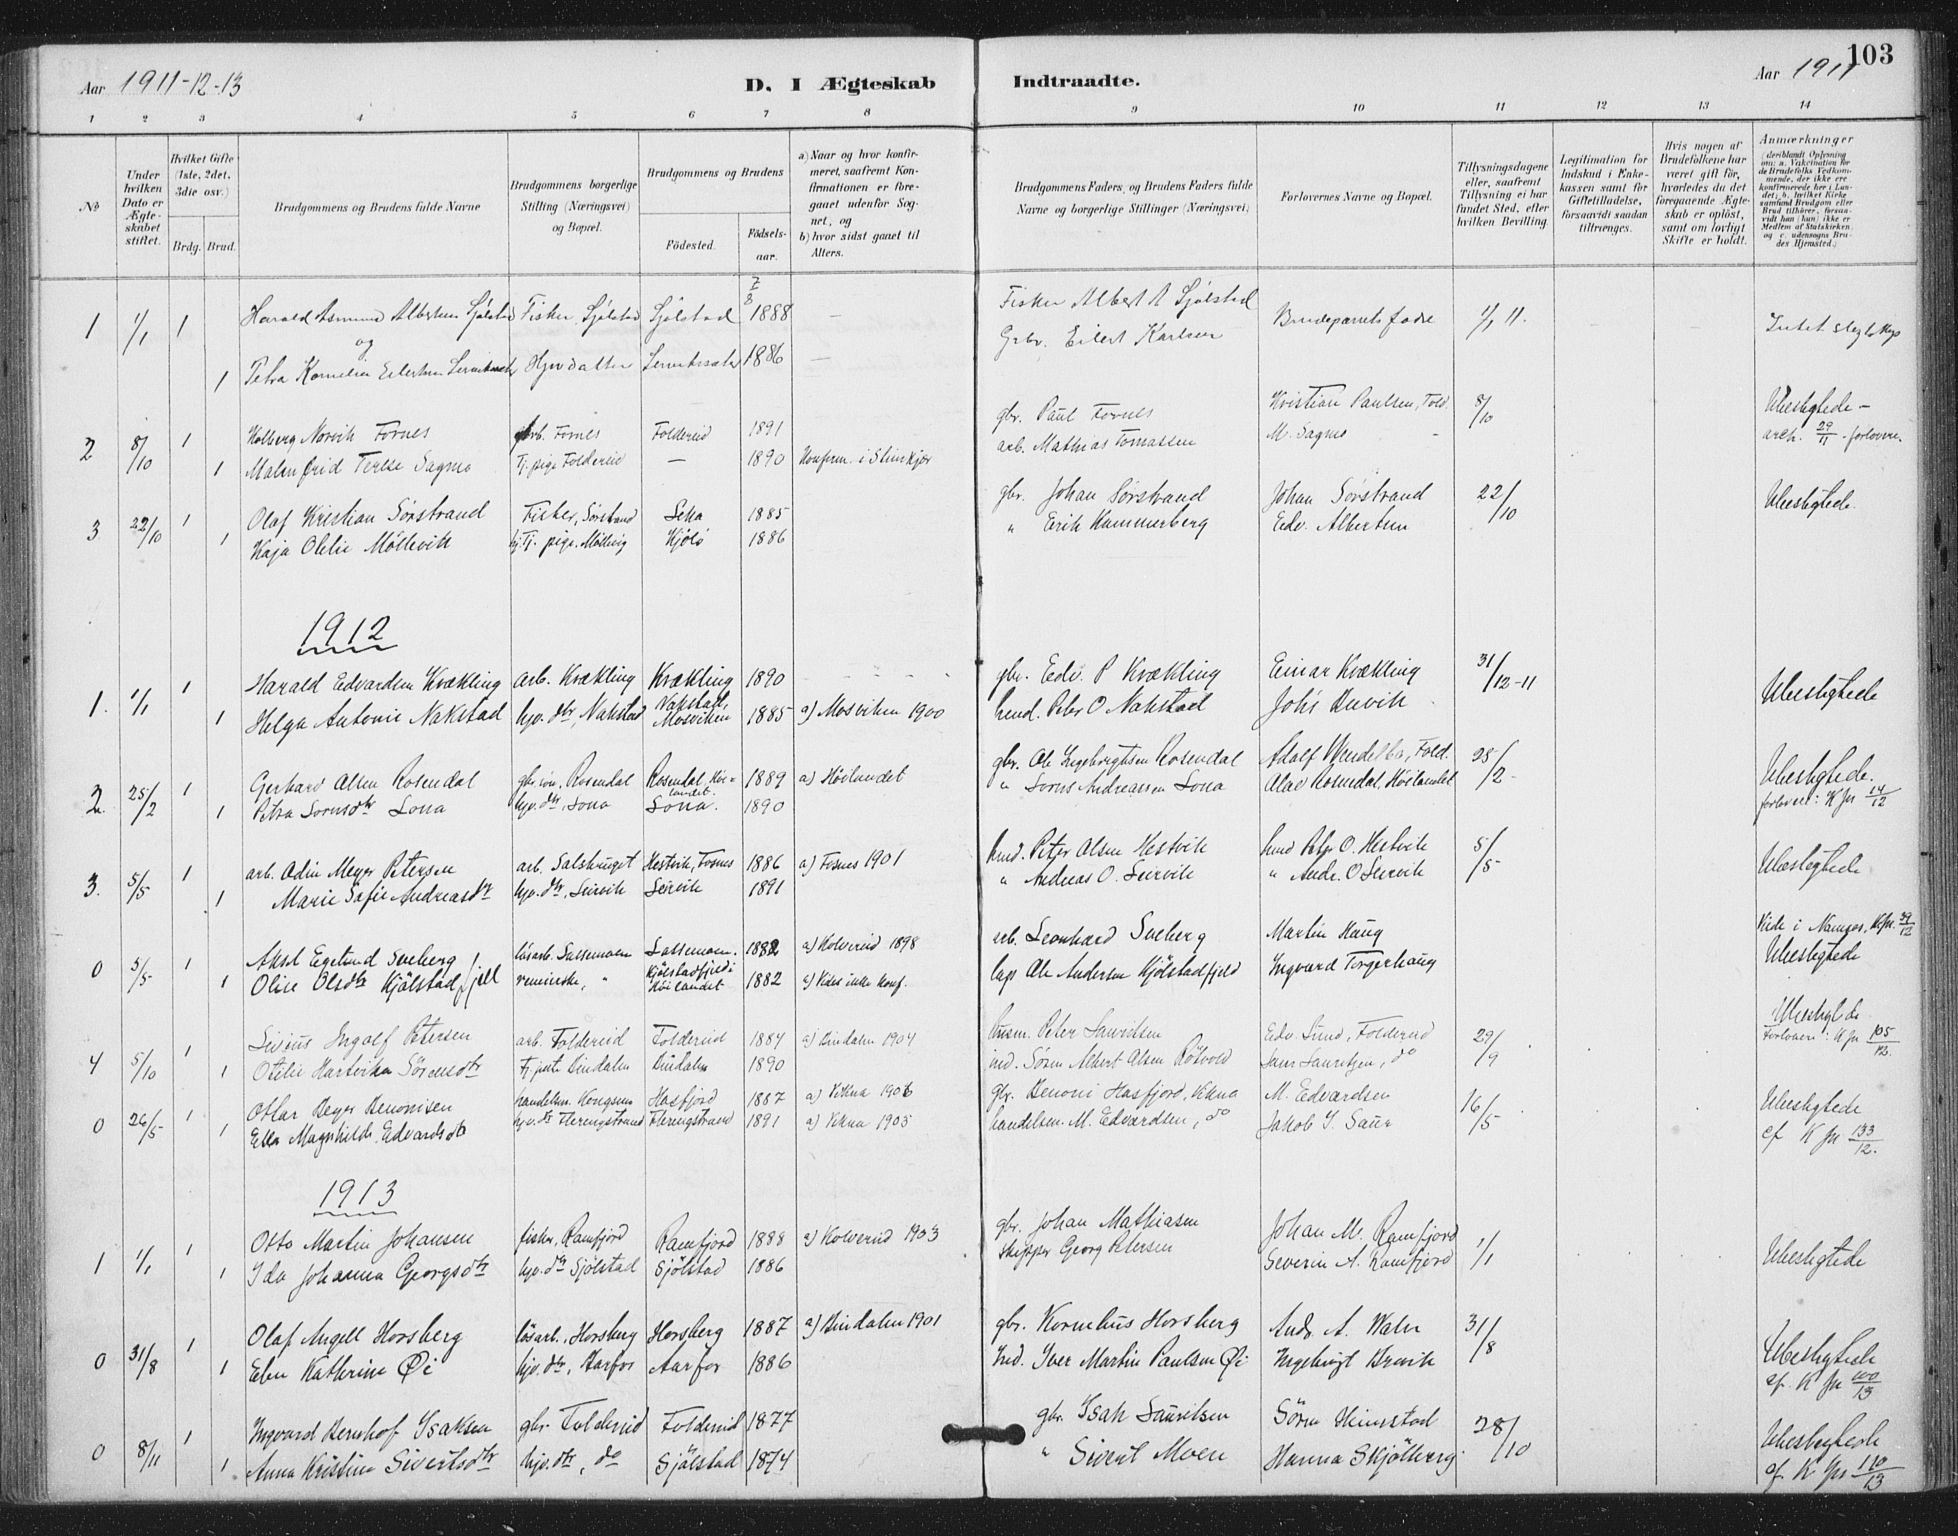 103
Aar 1911-12-13
D. I Ægteskab Indtraadte.
Aar 1911
1 2 3 4 5 6 7 8 9 10 11 12 13 14
No
Under hvilken Dato er Ægteskabet stiftet.
Hvilket Gifte (1ste, 2det, 3die osv.)
Brdg. Brud.
Brudgommens og Brudens fulde Navne
Brudgommens borgerlige Stilling (Næringsvei) og Bopæl.
Brudgommens og Brudens
Födested.
Födsels-aar.
a) Naar og hvor konfirmeret, saafremt Konfirmationen er foregaaet udenfor Sognet, og
b) hvor sidst gaaet til Alters.
Brudgommens Faders, og Brudens Faders fulde Navne og borgerlige Stillinger (Næringsvei)
Forlovernes Navne og Bopæl.
Tillysningsdagene eller, saafremt Tillysning ei har fundet Sted, efter hvilken Bevilling.
Legitimation for Indskud i Enkekassen samt for Giftetilladelse, forsaavidt saadan tiltrænges.
Hvis nogen af Brudefolkene har været gift för, hvorledes da det foregaaende Ægteskab er oplöst, samt om lovligt Skifte er holdt.
Anmærkninger
1 1/1 1 Harald Asmund Albertsen Sjølstad Fisker, Sjølstad Sjølstad 1888 — Fisker Albert A Sjølstad Brudeparrets fædre 1/1 11. Intet slegtskap
og
1 Petra Kornelia Eilertsen 1886 — Grbr. Eilert Karlsen
2 8/10 1 Holberg Norvik Fornes gbrb. Fornes Foldereid 1891 gbr. Paul Fornes Kristian Paulsen, Fold. 8/10 Ubeslegtede —
1 Terese Sagmo Tj. pige Foldereid — 1890 Konfirm. i Stenkjær arb. Mathias Tomassen M. Sagmo 29/11 forlovere.
3 22/10 1 Olaf Kristian Sörstrand Fisker, Sörstrand Leka 1885 gbr. Johan Sörstrand Johan Sörstrand 22/10 Ubeslegtede.
1 Kaja Oletie Möllevik Tj. pige. Kjölö 1886 " Erik Hammerberg Edv. Albertsen
1912
1. 1/1 1 Harald Edvardsen Kvækling arb. Kvækling Kvækling 1890 gbr. Edv. P Kvækling Einar Kvækling 31/12-11 Ubeslegtede
1 Helga Antonie Nakstad hjv. dtr. Nakstad Nakstad, Mosviken 1885 a) Mosviken 1900 husd. Peter O Nakstad
2. 25/2 1 Gerhard Olsen Rosendal gbr. sön, Rosendal Rosendal, Höilandet 1889 a) Höilandet gbr. Ole Ingebrigtsen Rosendal Adolf Wendelbo, Fold. 25/2 Ubeslegtede.
1 Petra Sornsdtr Lona hjv. dtr, Lona Lona. 1890 " Sorns Andreassen Lona Olav Rosendal, Höilandet forlovere: K pr 14/12
3. 5/5 1 arb. Odin Meyer Petersen arb. Salsbruget Hestvik, Fosnes 1886 a) Fosnes 1901 husd. Peter Olsen Hestvik husd Peter O. Hestvik 5/5 Ubeslegtede
1 Marie Sofie Andreasdtr hjv. dtr, Seirvik Seirvik 1891 " Andreas O. Seirvik " Andr. O Seirvik
0 5/5 1 Aksel Egelund Sveberg lösarb. Lassemoen Lassemoen. 1882 a) Kolvereid 1898 arb. Leonhard Sveberg Martin Haug Viede i Namsos, Kpr. 39/12
1 Oline Olsdtr Kjölstadfjell " Kjölstadfjeld i Höilandet 1882 a) Vides ikke konf. lap Ole Andersen Kjölstadfjeld Ingvard Torgerhaug Ubeslegtede
4 5/10 1 Sivius Ingolf Petersen arb. Foldereid Foldereid 1884 a) Bindalen 1904 husm. Peter Lauritsen Edv. Lund, Foldereid 29/9 Ubeslegtede
1 Otilie Hartvikka Sörensdtr Bindalen Bindalen 1890 ind. Sören Albert Olsen Rötvold Jens Lauritzen, do Forlovere: K pr 105/12.
0 26/5 1 Ottar Beyer Benonisen handelsm. Kongsmo Hasfjord 1887 a) Vikna 1906 gbr. Benoni Hasfjord, Vikna M. Edvardsen 16/5 Ubeslegtede
1 Ella Magnhilde Edvardsdtr hjv. dtr Flerengstrand Flerengstrand 1891 a) Vikna 1905 handelsm. M. Edvardsen, do Jakob J. Saur cf K pr 133/12.
1913
1 1/1 1 Otto Martin Johansen fisker, Ramfjord Ramfjord 1888 a) Kolvereid 1903 gbr. Johan Mathiasen Johan M. Ramfjord 1/1 Ubeslegtede
1 Ida Johanna Georgsdtr hjv. dtr Sjölstad Sjölstad 1886 skipper Georg Petersen Severin A. Ramfjord
0 31/8 1 Olaf Angell Horsberg lösarb. Horsberg Horsberg 1887 a) Bindalen 1901 gbr. Kornelius Horsberg Andr. A. 31/8 Ubeslegtede
1 Kathrine Öi hjv. dtr, Aarfor Aarfor 1886 Ind. Iver Martin Paulsen Öi Ingebrigt Brevik cf. K pr 100/13
0 8/11 1 Ingvard Bernhof Isaksen gbr. Foldereid Foldereid 1877 gbr. Isak Lauritsen Sören Heimstad 28/10 Ubeslegtede
1 Anna Kristine Sivertsdtr hjv. dtr, do Sjölstad 1874 " Sivert Moen Hanna Skjölberg cf K pr 110/13